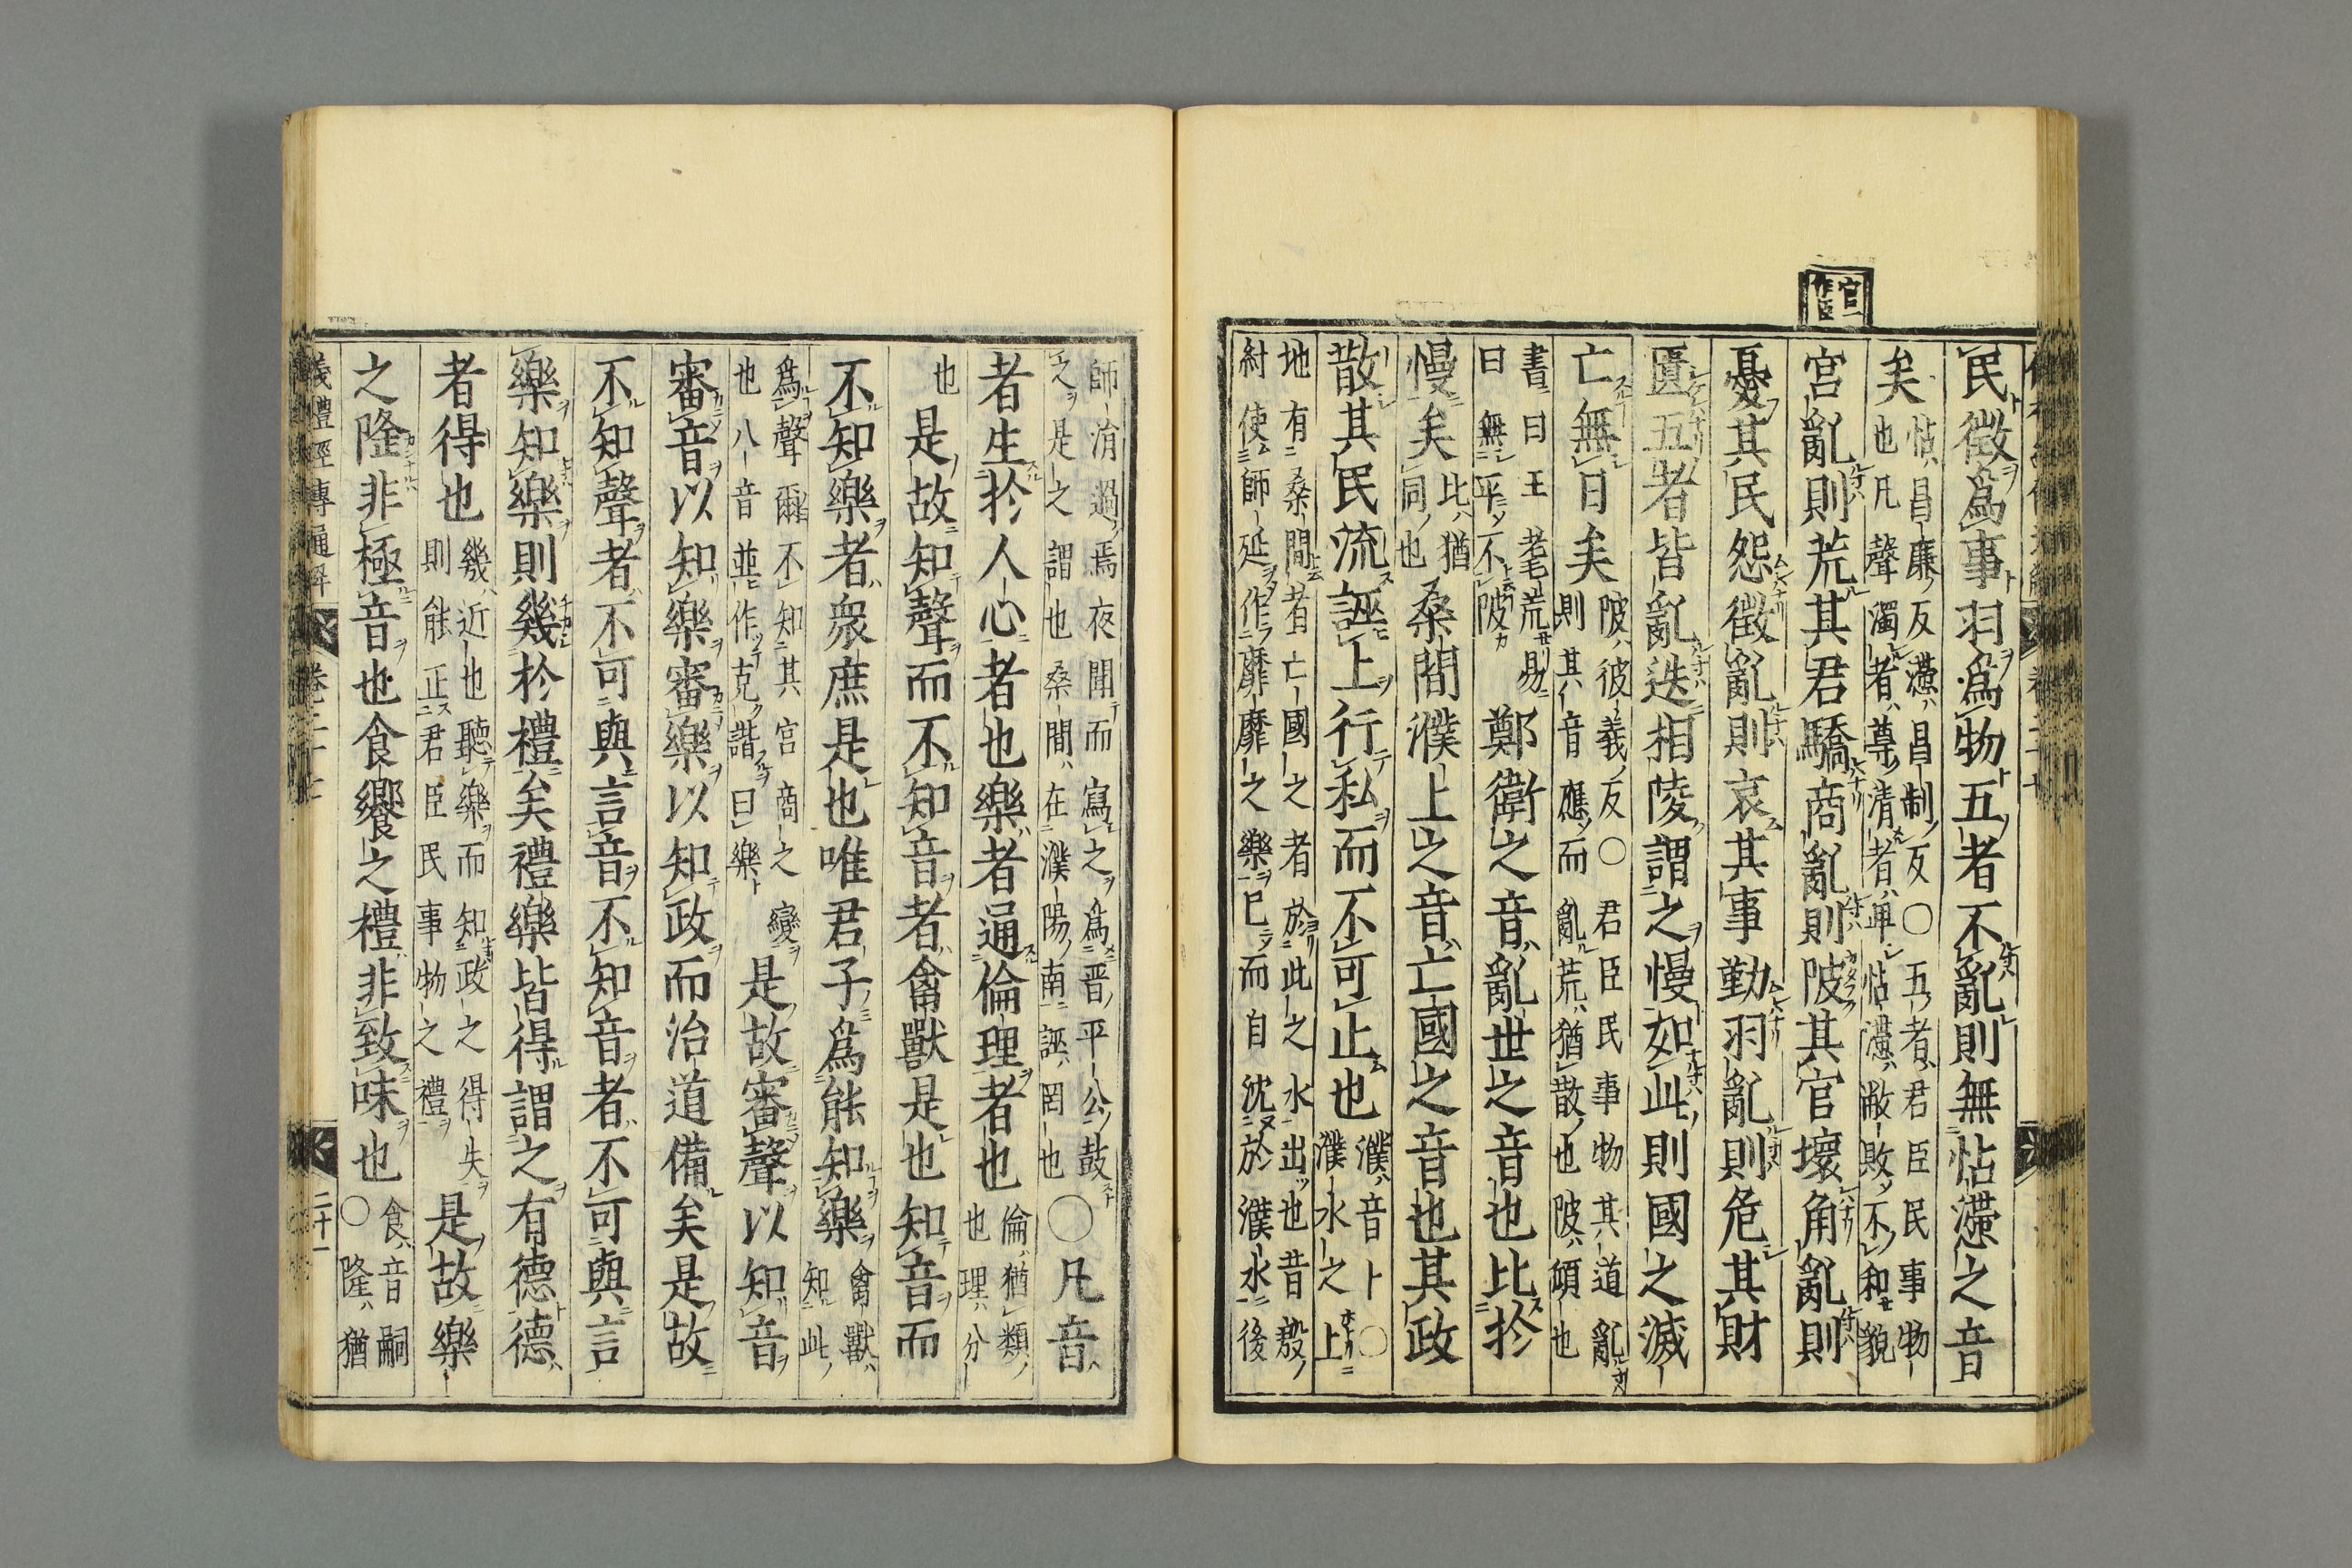 官一作臣
民徵爲事羽爲物五者不亂則無怗懘之音
矣怗昌廉反懘昌制反〇五者君臣民事物也凡聲濁者尊清者卑怗懘敝敗不和貌
宮亂則荒其君驕商亂則陂其官壞角亂則
憂其民怨徵亂則哀其事勤羽亂則危其財
匱五者皆亂迭相陵謂之慢如此則國之滅
亡無日矣陂彼義反〇君臣民事物其道亂則其音應而亂荒猶散也陂傾也
書曰王耄荒易曰無平不陂鄭衛之音亂世之音也比於
慢矣比猶同也桑間濮上之音亡國之音也其政
散其民流誣上行私而不可止也濮音卜〇濮水之上
地有桑間者亡國之者於此之水出也昔殷紂使師延作靡靡之樂已而自沈於濮水後
師涓過焉夜聞而寫之爲晋平公鼓之是之謂也桑間在濮陽南誣罔也〇凡音
者生於人心者也樂者通倫理者也倫猶類也理分
也是故知聲而不知音者禽獸是也知音而
不知樂者衆庶是也唯君子爲能知樂禽獸知此
爲聲爾不知其宮商之變也八音並作克諧曰樂是故審聲以知音
審音以知樂審樂以知政而治道備矣是故
不知聲者不可與言音不知音者不可與言
樂知樂則幾於禮矣禮樂皆得謂之有德德
者得也幾近也聽樂而知政之得失則能正君臣民事物之禮是故樂
之隆非極音也食饗之禮非致味也食音嗣〇隆猶
儀禮經傳通解 卷二十七 二十一